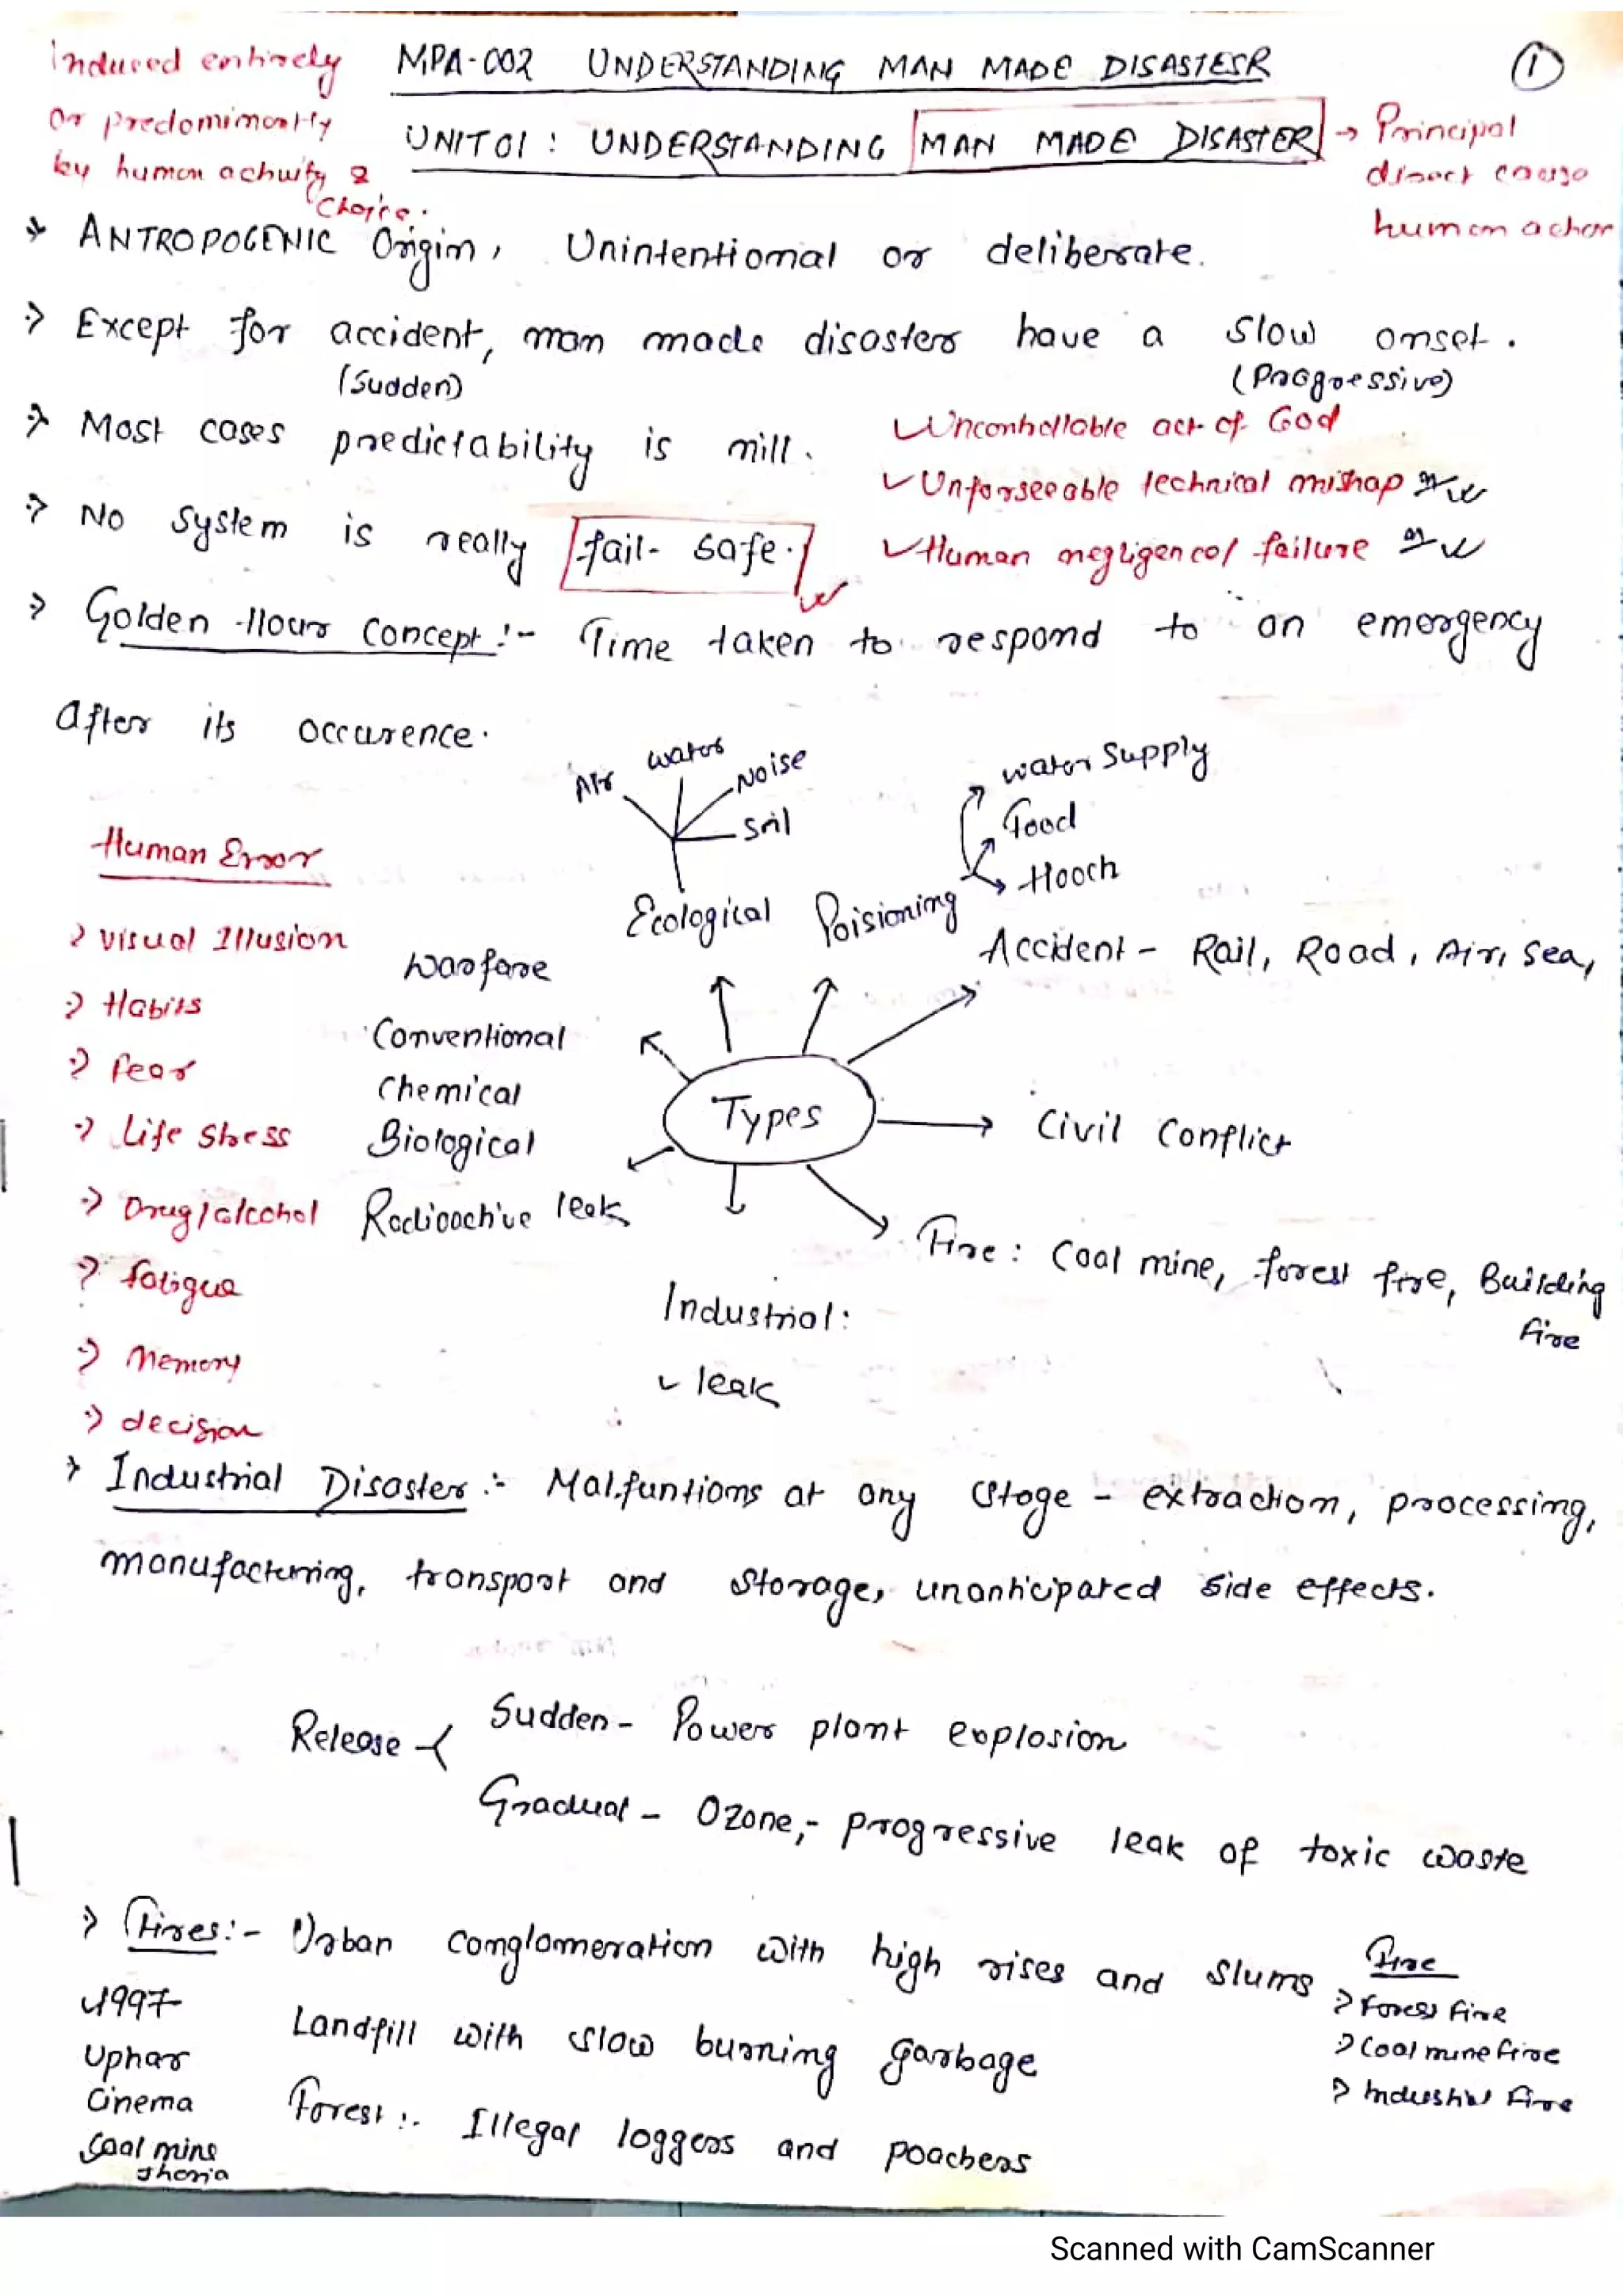 Induced entirely
or predominantly
by human activity &
choice.
MPA-002 UNDERSTANDING MAN MADE DISASTESR
1
UNIT 01 : UNDERSTANDING MAN MADE DISASTER → Principal
direct cause
human action
ANTROPOGENIC Origin, Unintentional or deliberate.
Except for accident, man made disasters have a slow onset.
(Sudden) (Proggressive)
Most cases predictability is nill.
Uncontrollable act of God
Unforseeable technical mishap or
No system is really fail-safe.
Human negligence/failure or
Golden Hour Concept :- Time taken to respond to an emergency
after its occurence.
Air water Noise Soil
water Supply
Food
Hooch
Human Error
Ecological Poisioning
Accident - Rail, Road, Air, Sea,
Visual Illusion
Habits
fear
Life Stress
Drug/alcohol
fatigue
Memory
decision
Warfare
Conventional
Chemical
Biological
Radioactive leak
Types
Civil Conflict
Fire : Coal mine, forest fire, Building
fire
Industrial :
leak
Industrial Disaster :- Malfuntions at any stage - extraction, processing,
manufacturing, transport and storage, unanticipated side effects.
Release
Sudden - Power plant explosion
Gradual - Ozone,- progressive leak of toxic waste
Fires :- Urban conglomeration with high rises and slums
Landfill with slow burning garbage
Forest :- Illegal loggers and poachers
1997
Uphar
Cinema
Coal mine
Jharia
Fire
Forest Fire
Coal mine fire
Industrial Fire
Scanned with CamScanner